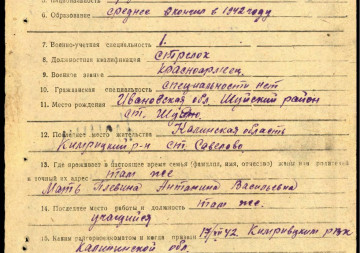 6. Образование среднее окончил в 1942 году
7. Военно-учетная специальность 1.
8. Должностная квалификация стрелок
9. Военное звание красноармеец
10. Гражданская специальность специальности нет
11. Место рождения Ивановская обл. Шуйский район
ст.
12. Последнее место жительства Калинская область
Кимрицкий р-н ст. Савелово
13. Где проживает в настоящее время семья (фамилия, имя, отчество) жены или родителей
и точный их адрес там же
Мать Плевина Антонина Васильевна
14. Последнее место работы и должность там же.
учащийся
15. Каким райгорвоенкоматом и когда призван 42. Кимрицким рвк
Калининской обл.